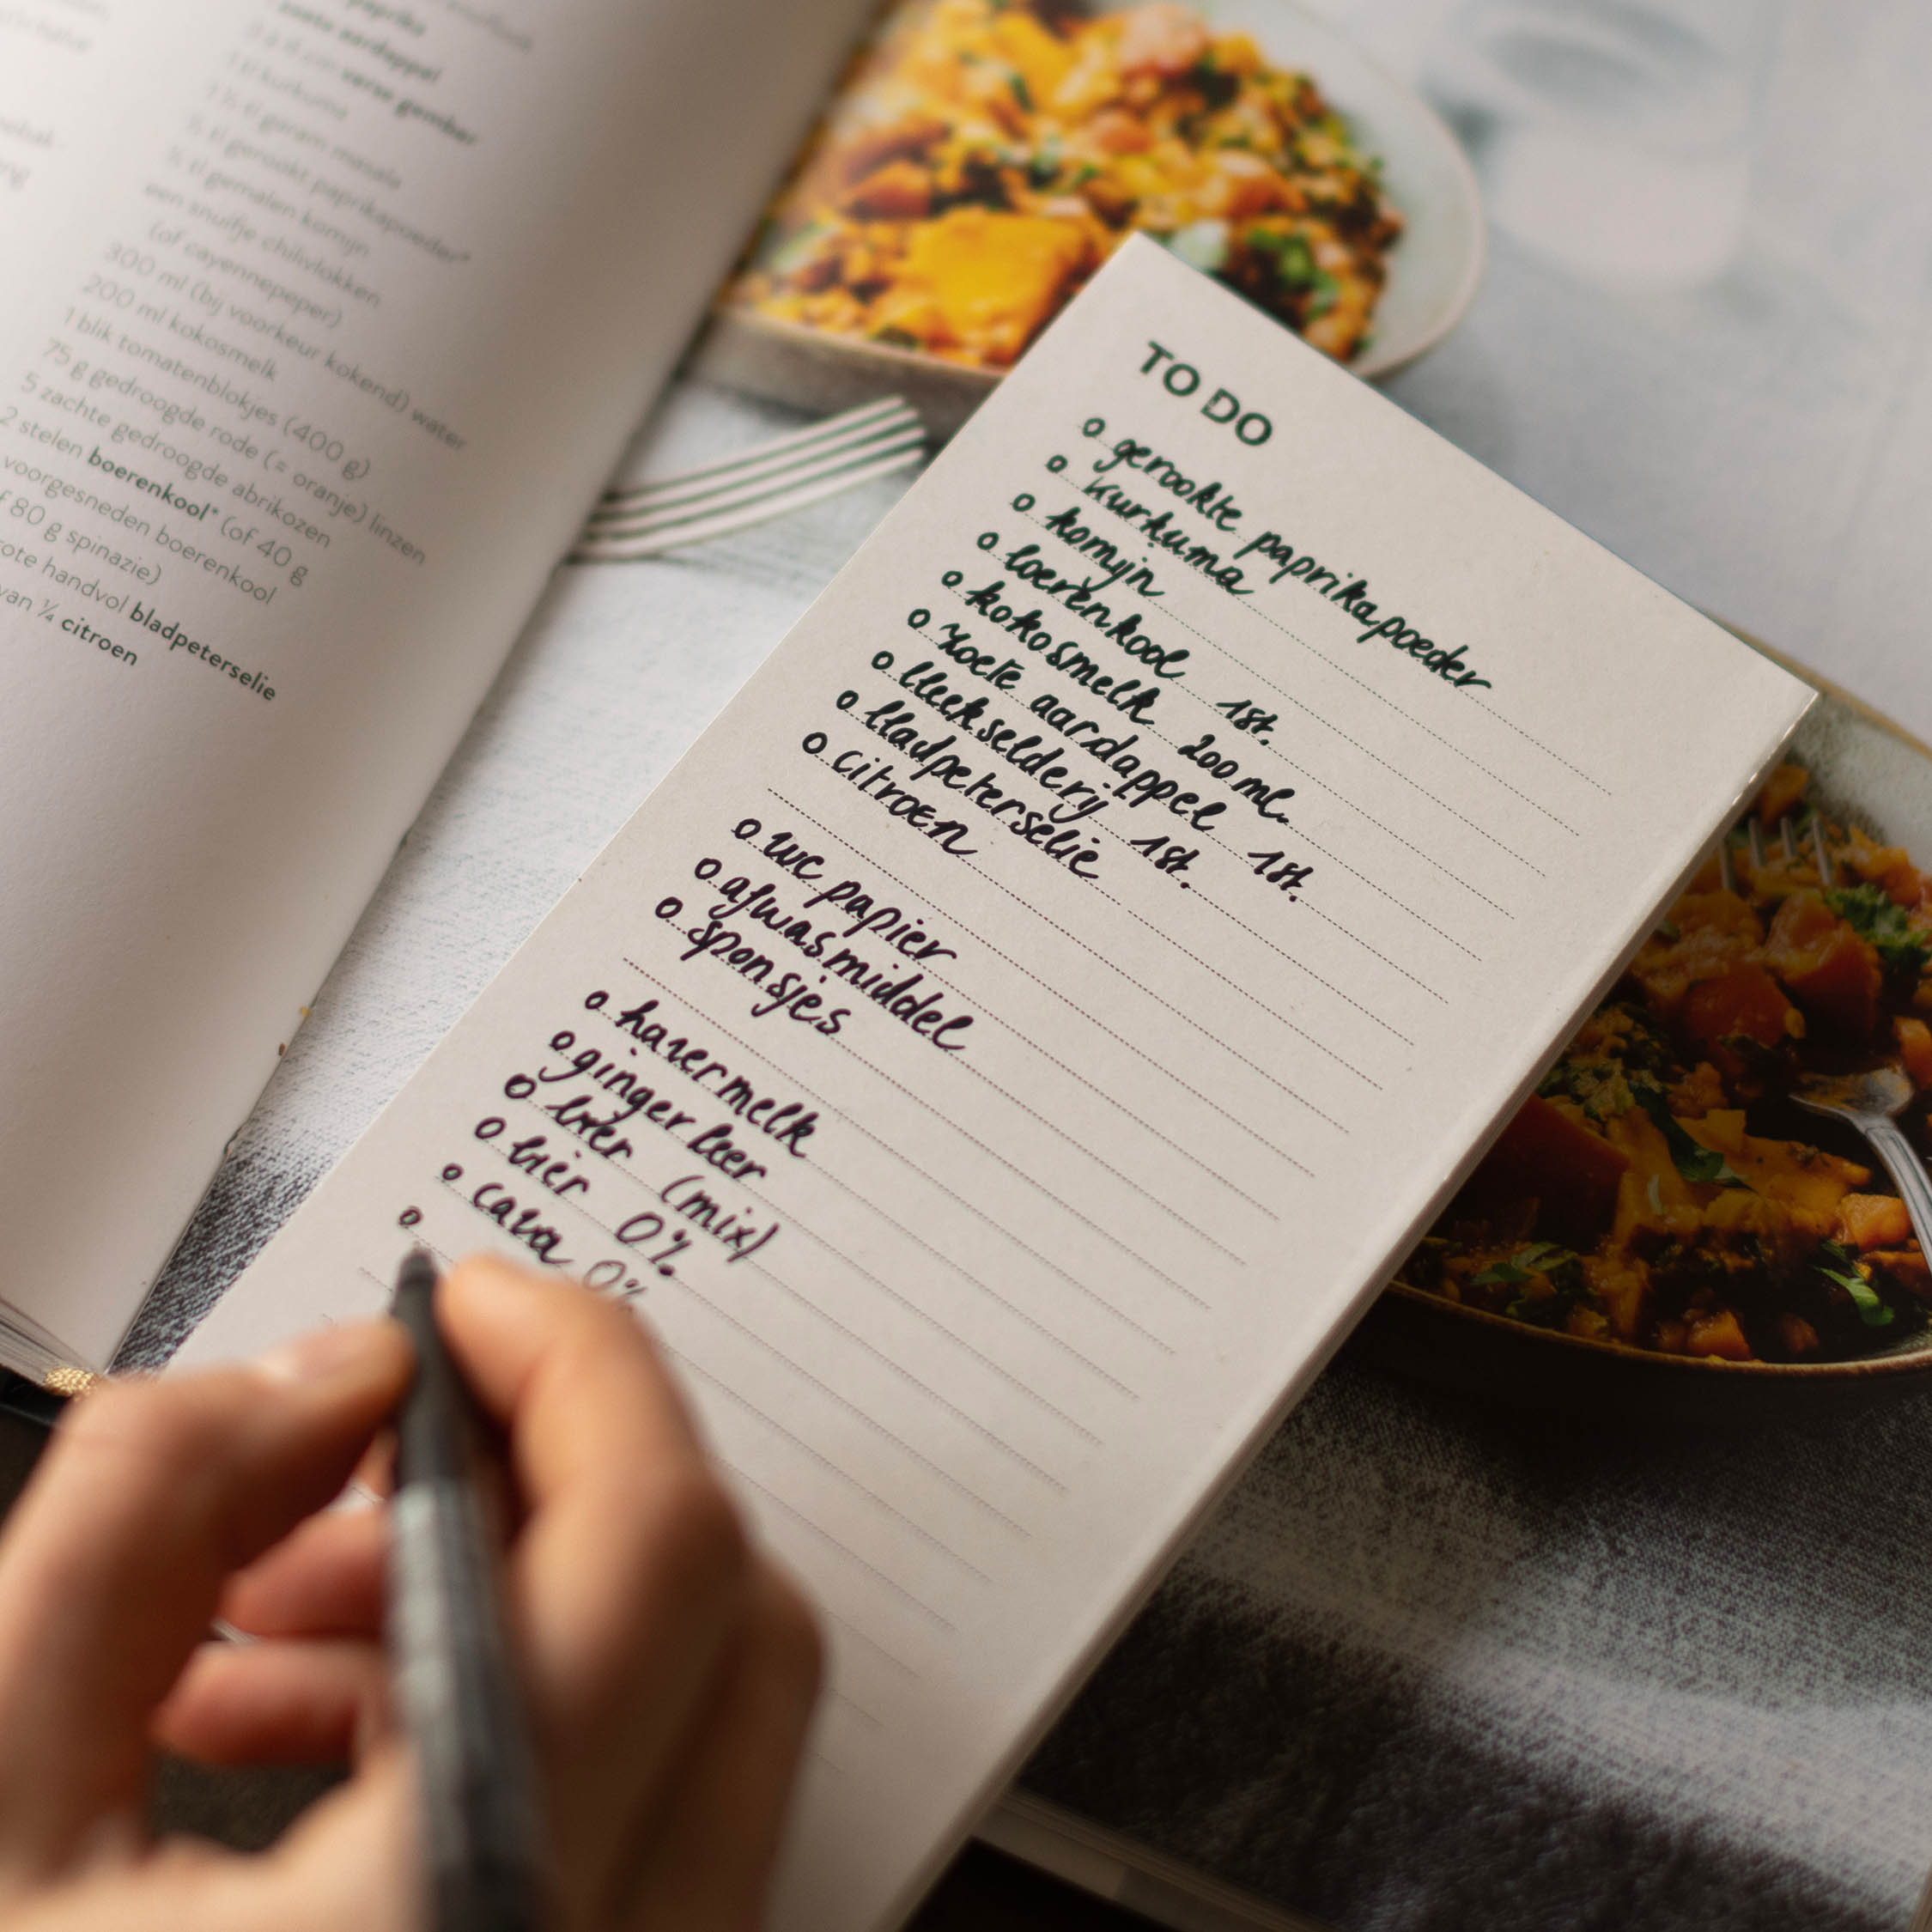 zoete aardappel
verse gember
1 tl kurkuma
1 ½ tl garam masala
½ tl gerookt paprikapoeder*
½ tl gemalen komijn
een snufje chilivlokken
(of cayennepeper)
300 ml (bij voorkeur kokend) water
200 ml kokosmelk
1 blik tomatenblokjes (400 g)
75 g gedroogde rode (= oranje) linzen
5 zachte gedroogde abrikozen
2 stelen boerenkool* (of 40 g
voorgesneden boerenkool
80 g spinazie)
handvol bladpeterselie
van ¼ citroen
TO DO
o gerookte paprikapoeder
o kurkuma
o komijn
o boerenkool 1st.
o kokosmelk 200 ml.
o zoete aardappel 1st.
o bleekselderij 1st.
o bladpeterselie
o citroen
o wc papier
o afwasmiddel
o sponsjes
o havermelk
o gingerbeer
o bier (mix)
o bier 0%
o cava 0%
o